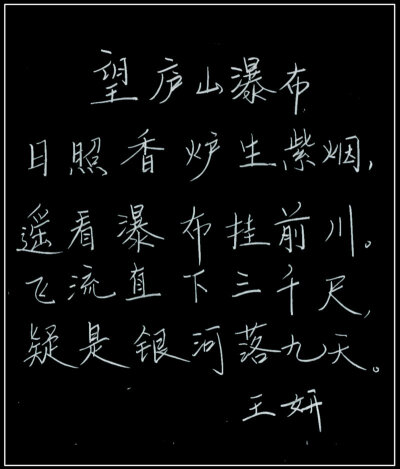 望庐山瀑布
日照香炉生紫烟,
遥看瀑布挂前川。
飞流直下三千尺,
疑是银河落九天。
王妍